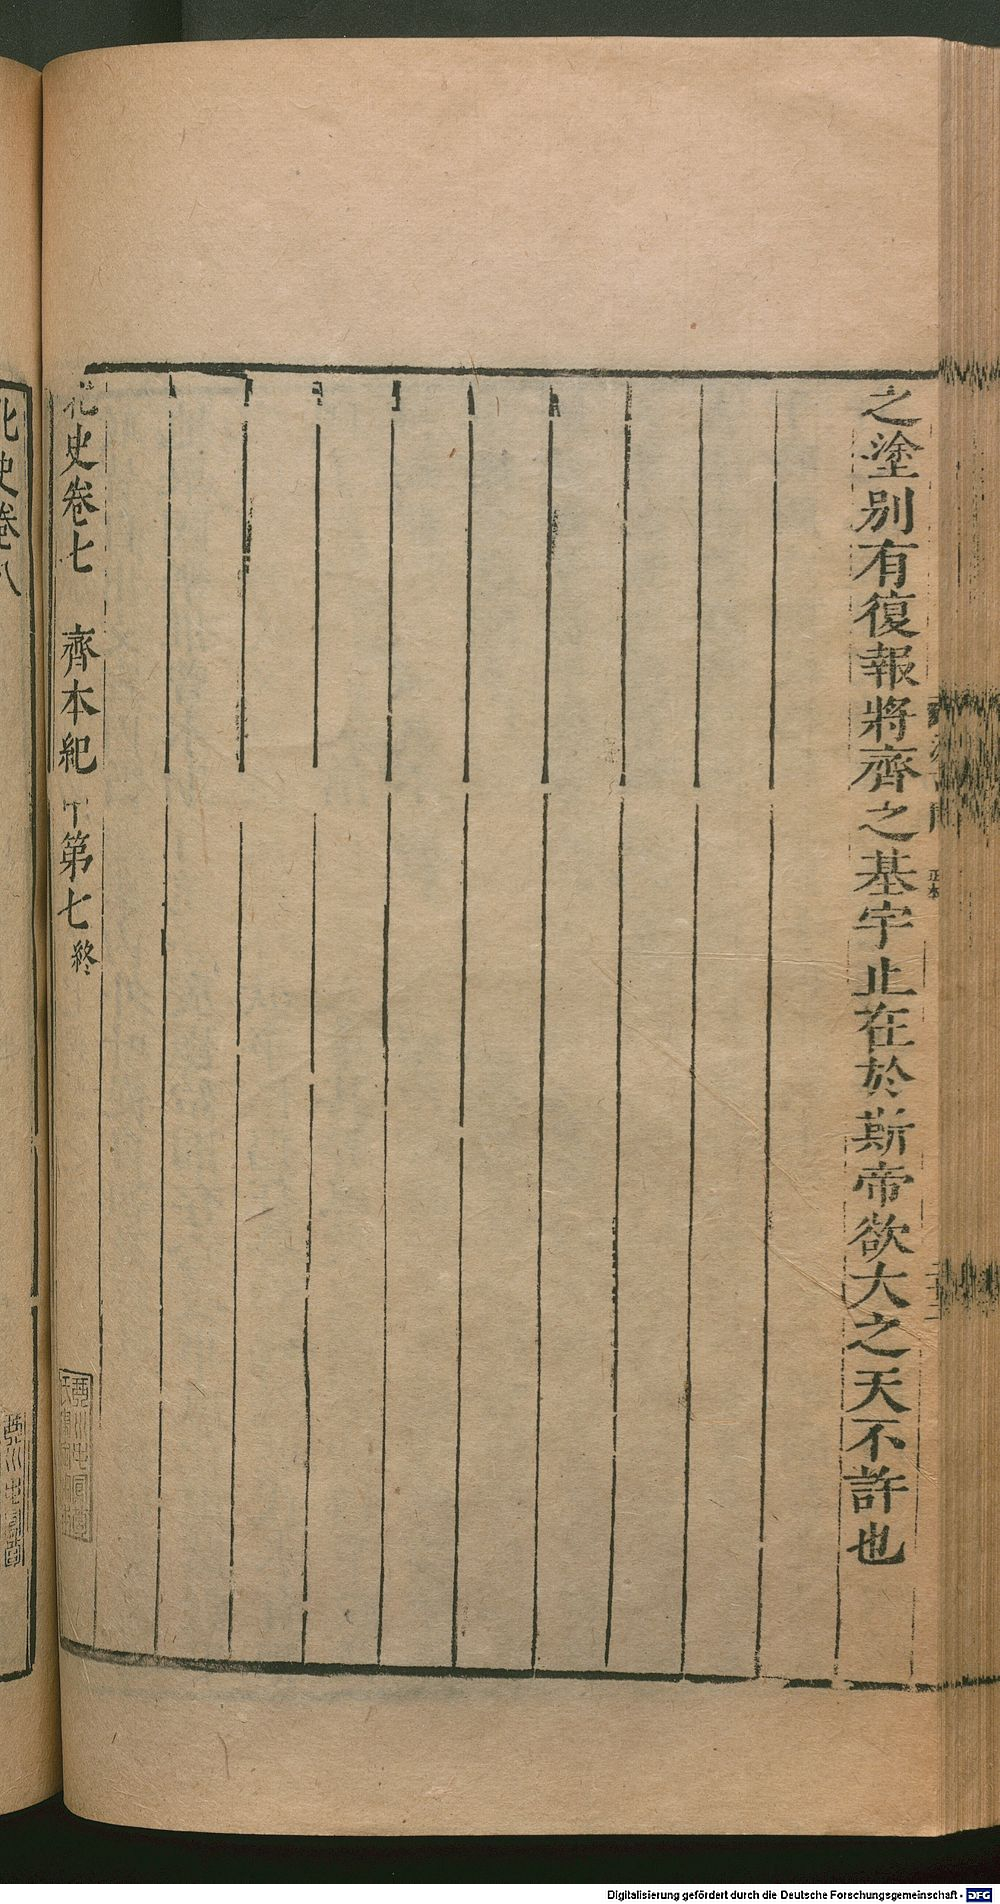 之塗別有復報將齊之基宇止在於斯帝欲大之天不許也
北史卷七 齊本紀中第七終
北史卷八
Digitalisierung gefördert durch die Deutsche Forschungsgemeinschaft - DFG